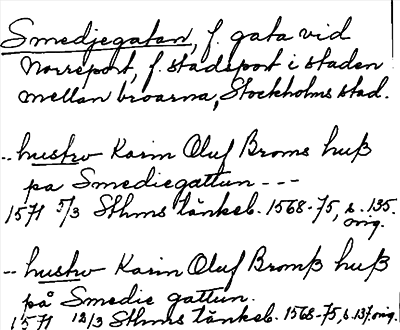 Smedjegatan, f. gata vid
Norreport, f. stadsport i staden
mellan broarna, Stockholms stad.
-- hustrv Karin Oluf Broms huß
pa Smediegattun - - -
1571 5/3 Sthms tänkeb. 1568-75, s. 135.
orig.
-- hustrv Karin Oluf Bromß huß
på Smedie gattun.
1571 12/3 Sthms tänkeb. 1568-75, s. 137 orig.